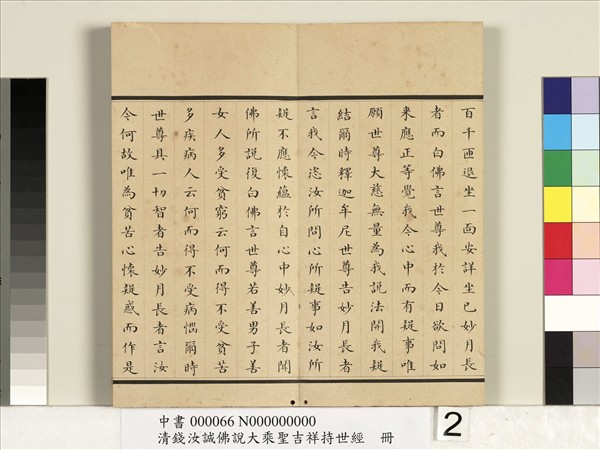 百千匝退坐一面安詳坐已妙月長
者而白佛言世尊我於今日欲問如
来應正等覺我今心中而有疑事唯
願世尊大慈無量為我說法開我疑
結爾時釋迦牟尼世尊告妙月長者
言我今恣汝所問心所疑事如汝所
疑不應懷蘊於自心中妙月長者聞
佛所說復白佛言世尊若善男子善
女人多受貧窮云何而得不受貧苦
多疾病人云何而得不受病惱爾時
世尊具一切智者告妙月長者言汝
今何故唯為貧苦心懷疑惑而作是
中書 000066 N000000000
清錢汝誠佛說大乘聖吉祥持世經 冊
2